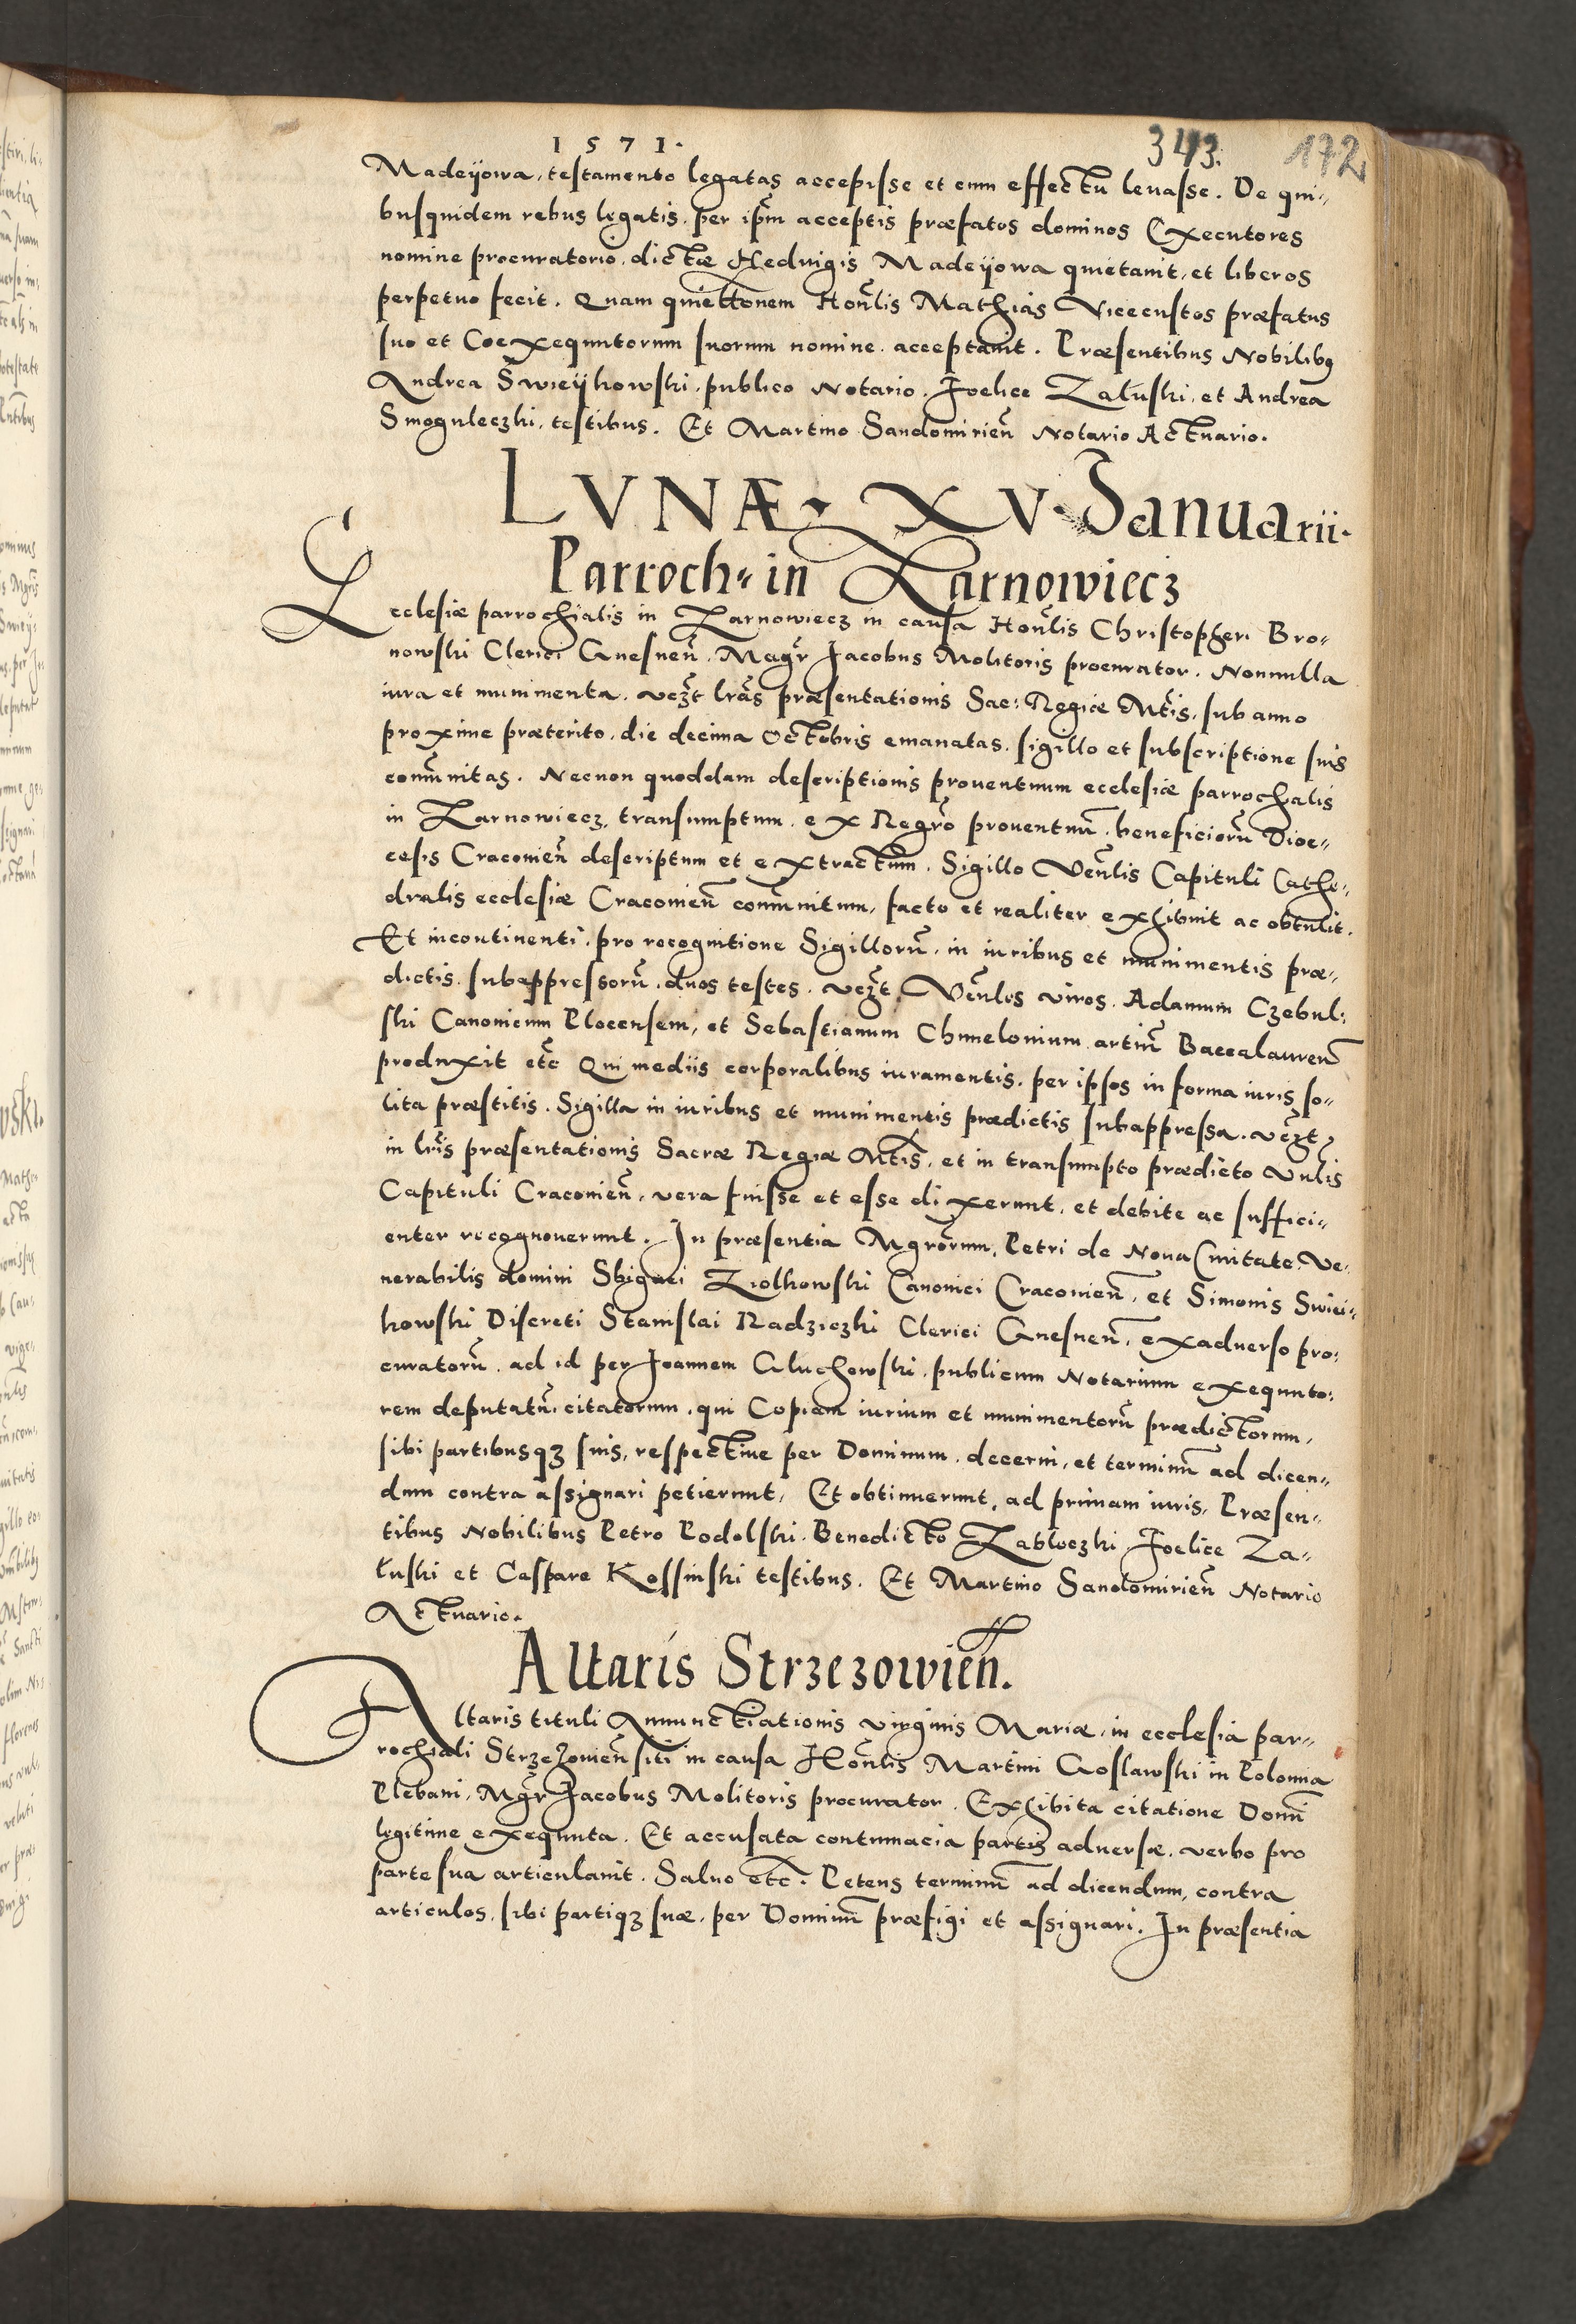 1571.
343.
172
Madeÿowa, testamento legatas accepisse et cum effectu leuasse. De qui„
busquidem rebus legatis, per ip̃m acceptis præfatos dominos Executores
nomine procuratorio, dictæ Heduigis Madeÿowa quietauit, et liberos
perpetuo fecit. Quam quiettonem Hon̄lis Mathias Vicecustos præfatus
suo et Coexequutorum suorum nomine acceptauit. Præsentibus Nobilibꝫ
Andrea Swieÿkowski, publico Notario, Foelice Załuski, et Andrea
Smoguleczki, testibus. Et Martino Sandomirień Notario Actuario.
LVNÆ. XV. Januarii.
Parroch„ in Zarnowiecz
Ecclesiæ parrochialis in Zarnowiecz in causa Hon̄lis Christopheri Bro„
nowski Clerici Gnesneñ. Magr̃ Jacobus Molitoris procurator. Nonnulla
iura et munimenta, vcꝫt lr̃as præsentationis Sac: Regiæ Mt̃is, sub anno
proxime præterito, die decima Octobris emanatas, sigillo et subscriptione suis
com̄unitas. Necnon quoddam descriptionis prouentuum ecclesiæ parrochialis
in Zarnowiecz, transumptum, ex Regr̃o prouentuũ, beneficiorũ Dioe„
cesis Cracouieñ descriptum et extractum. Sigillo Veñlis Capituli Cathe„
dralis ecclesiæ Cracouieñ com̄unitum, facto et realiter exhibuit ac obtulit.
Et incontinenti, pro recognitione Sigillorũ, in iuribus et munimentis præ„
dictis, subappressorũ, duos testes, vcꝫt, Veñles viros, Adamum Czebul:
ski Canonicum Plocensem, et Sebastianum Chmelonium artiũ Baccalaureũ
produxit etc̃ Qui mediis corporalibus iuramentis, per ipsos in forma iuris so„
lita præstitis. Sigilla in iuribus et munimentis prædictis subappressa, vcꝫt,
in lr̃is præsentationis Sacræ Regiæ Mt̃is, et in transumpto prædicto Vñlis
Capituli Cracouieñ, vera fuisse et esse dixerunt, et debite ac suffici„
enter recognouerunt. In præsentia Mgrõrum, Petri de Noua Ciuitate, Ve:
nerabilis domini Sbignei Ziolkowski Canonici Cracouieñ, et Simonis Swiei:
kowski Discreti Stanislai Radziczki Clerici Gnesneñ, exaduerso pro:
curatorũ, ad id per Joannem Gluchowski, publicum Notarium exequuto:
rem deputatũ, citatorum, qui Copiam iurium et munimentorũ prædictorum,
sibi partibusqꝫ suis, respectiue per Dominum, decerni, et terminũ ad dicen„
dum contra assignari petierunt, Et obtinuerunt, ad primam iuris, Præsen„
tibus Nobilibus Petro Podolski, Benedicto Zabloczki, Foelice Za„
łuski et Caspare Kossinski testibus. Et Martino Sandomirieñ Notario
Actuario.
Altaris Strzezowieñ.
Altaris tituli Annunctiationis virginis Mariæ, in ecclesia par„
rochiali Strzezowieñ siti in causa Hoñlis Martini Goslawski in Polomia
Plebani, Mgr̃ Jacobus Molitoris procurator. Exhibita citatione Domĩ
legitime exequuta. Et accusata contumacia partis aduersæ, verbo pro
parte sua articulauit. Saluo etc̃. Petens terminũ ad dicendum, contra
articulos, sibi partiqꝫ suæ, per Dominũ præfigi et assignari. In præsentia